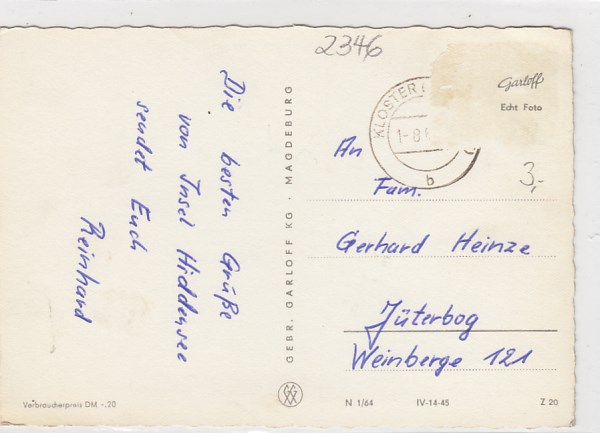 2346
Die besten Grüße
von Insel Hiddensee
sendet Euch
Reinhard
GEBR. GARLOFF KG · MAGDEBURG
KLOSTER
1-8
b
Garloff
Echt Foto
3,-
An
Fam.
Gerhard Heinze
Jüterbog
Weinberge 121
Verbraucherpreis DM -.20
N 1/64 IV-14-45 Z 20